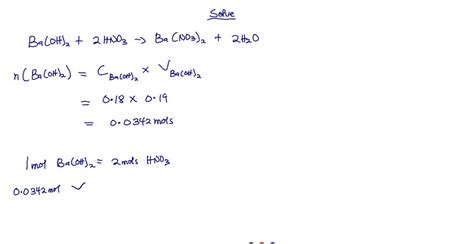 Solve
Ba(OH)₂ + 2HNO₃ → Ba(NO₃)₂ + 2H₂O
n(Ba(OH)₂) = C Ba(OH)₂ × V Ba(OH)₂
= 0.18 × 0.19
= 0.0342 mols
1 mol Ba(OH)₂ = 2 mols HNO₃
0.0342 mol ✓